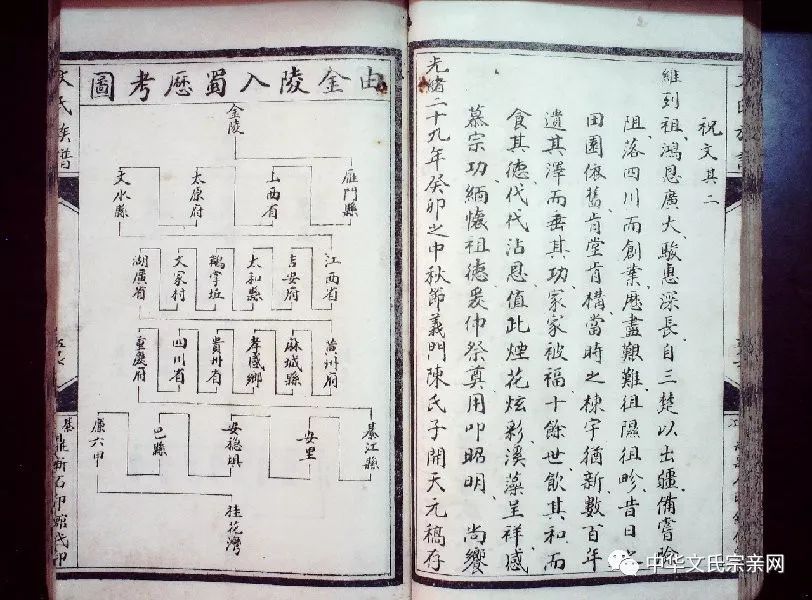 祝文其二
維列祖鴻恩廣大駿惠深長自三楚以出疆備嘗險
阻落四川而創業歷盡艱難徂隰徂畛昔日之
田園依舊肯堂肯構當時之棟宇猶新數百年
遺其澤而垂其功家家被福十餘世飲其和而
食其德代代沾恩值此煙花炫彩溪藻呈祥感
慕宗功緬懷祖德爰伸祭奠用叩昭明 尚饗
光緒二十九年癸卯之中秋節義門陳氏子開天元稿存
由金陵入蜀歷考圖
金陵
雁門縣
山西省
太原府
文水縣
江西省
吉安府
太和縣
鵝掌坵
文家村
湖廣省
黃州府
麻城縣
孝感鄉
貴州省
四川省
重慶府
綦江縣
安里
安穩垻
巴縣
廉六甲
桂花灣
文氏族譜
綦鼎新石印館代印
中华文氏宗亲网